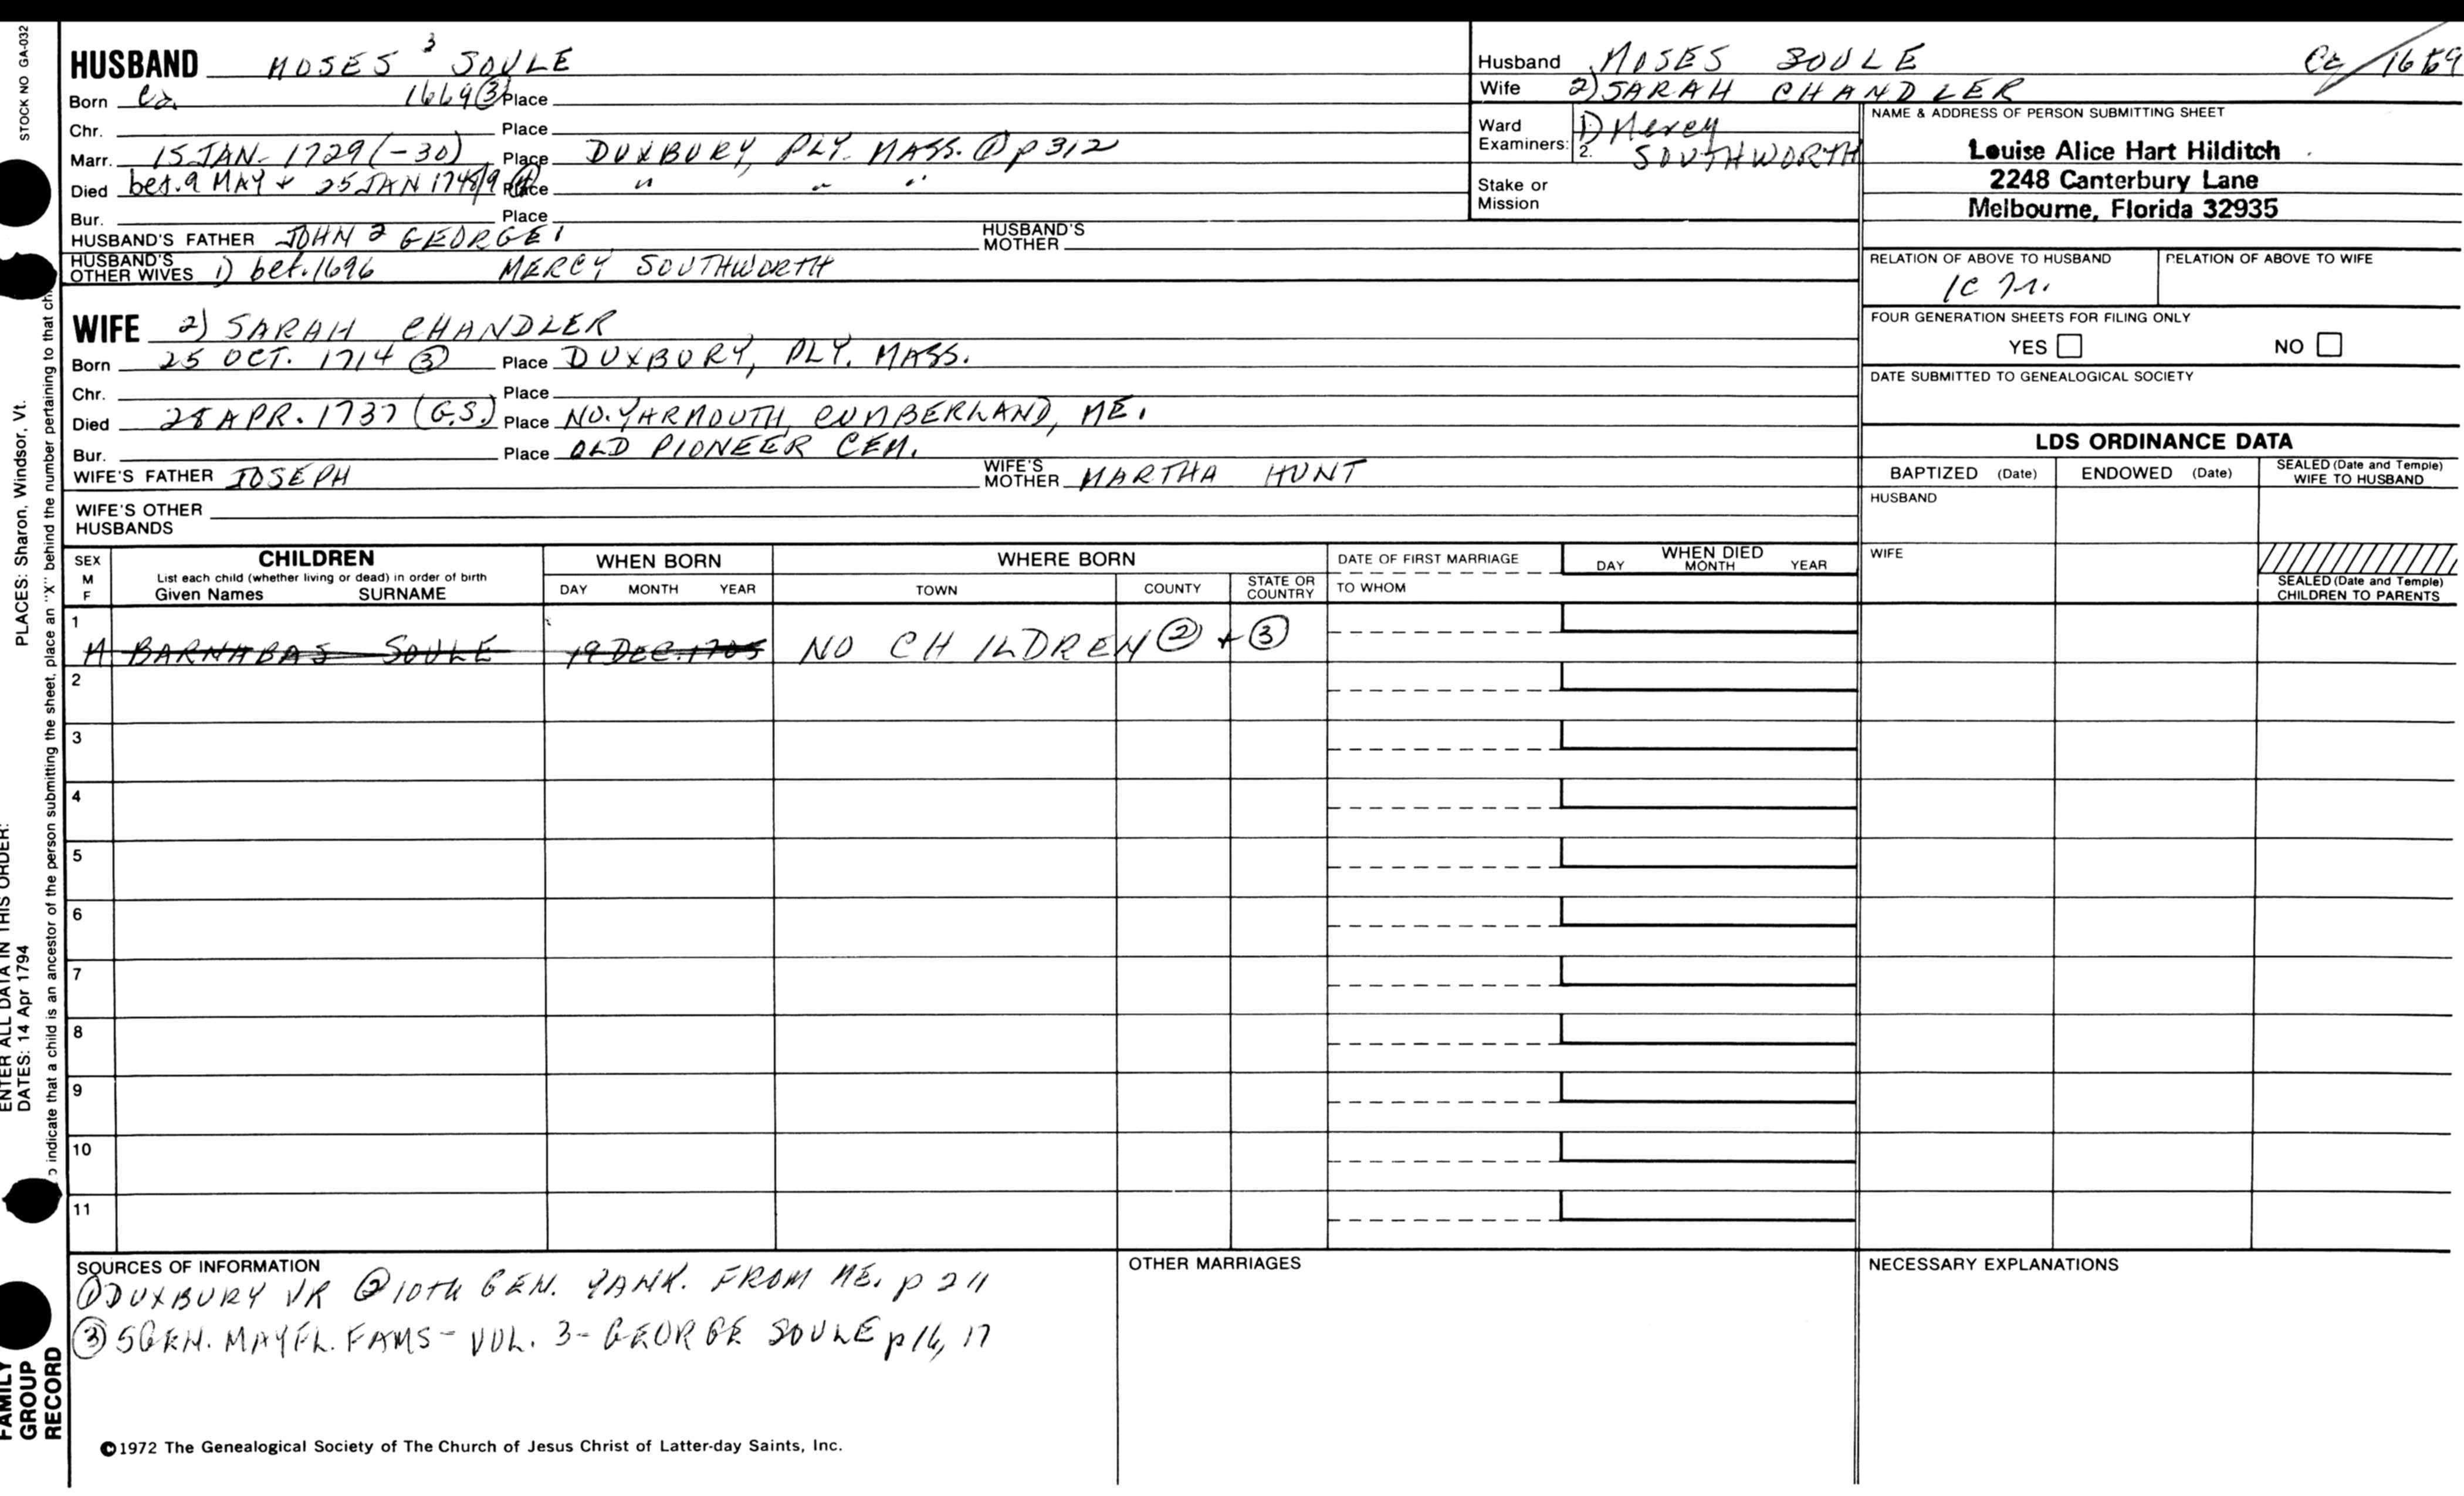 HUSBAND MOSES 3 SOULE
Born Ca. 1669 ③ Place
Chr. Place
Marr. 15 JAN. 1729 (-30) Place DUXBURY, PLY. MASS. ① p 312
Died bet. 9 MAY + 25 JAN 1748/9 Place " " "
Bur. Place
HUSBAND'S FATHER JOHN 2 GEORGE 1 HUSBAND'S MOTHER
HUSBAND'S OTHER WIVES 1) bef. 1696 MERCY SOUTHWORTH
WIFE 2) SARAH CHANDLER
Born 25 OCT. 1714 ③ Place DUXBURY, PLY. MASS.
Chr. Place
Died 28 APR. 1737 (G.S.) Place NO. YARMOUTH, CUMBERLAND, ME.
Bur. Place OLD PIONEER CEM.
WIFE'S FATHER JOSEPH WIFE'S MOTHER MARTHA HUNT
WIFE'S OTHER HUSBANDS
Husband MOSES SOULE
Wife 2) SARAH CHANDLER
Ward Examiners: 1) Mercy
2. SOUTHWORTH
Stake or Mission
NAME & ADDRESS OF PERSON SUBMITTING SHEET
Louise Alice Hart Hilditch
2248 Canterbury Lane
Melbourne, Florida 32935
RELATION OF ABOVE TO HUSBAND RELATION OF ABOVE TO WIFE
FOUR GENERATION SHEETS FOR FILING ONLY
YES NO
DATE SUBMITTED TO GENEALOGICAL SOCIETY
LDS ORDINANCE DATA
BAPTIZED (Date) ENDOWED (Date) SEALED (Date and Temple) WIFE TO HUSBAND
HUSBAND
WIFE
SEALED (Date and Temple) CHILDREN TO PARENTS
SEX M F CHILDREN WHEN BORN WHERE BORN DATE OF FIRST MARRIAGE WHEN DIED
List each child (whether living or dead) in order of birth
Given Names SURNAME DAY MONTH YEAR TOWN COUNTY STATE OR COUNTRY TO WHOM DAY MONTH YEAR
1
M BARNABAS SOULE 19 DEC. 1705 NO CHILDREN ② + ③
2
3
4
5
6
7
8
9
10
11
SOURCES OF INFORMATION
① DUXBURY VR ② 10TH GEN. YANK. FROM ME. p 211
③ 5 GEN. MAYFL. FAMS - VOL. 3 - GEORGE SOULE p 16, 17
OTHER MARRIAGES
NECESSARY EXPLANATIONS
©1972 The Genealogical Society of The Church of Jesus Christ of Latter-day Saints, Inc.
STOCK NO GA-032
PLACES: Sharon, Windsor, Vt.
ENTER ALL DATA IN THIS ORDER:
DATES: 14 Apr 1794
indicate that a child is an ancestor of the person submitting the sheet, place an "X" behind the number pertaining to that
FAMILY GROUP RECORD